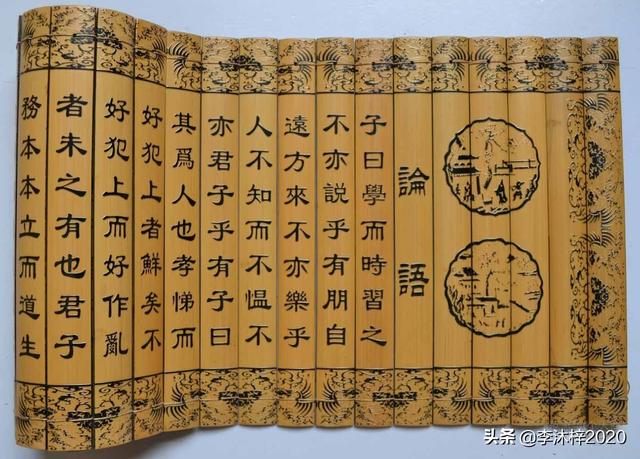 論語
子曰學而時習之
不亦説乎有朋自
遠方來不亦樂乎
人不知而不愠不
亦君子乎有子曰
其爲人也孝悌而
好犯上者鮮矣不
好犯上而好作亂
者未之有也君子
務本本立而道生
头条 @李沐梓2020